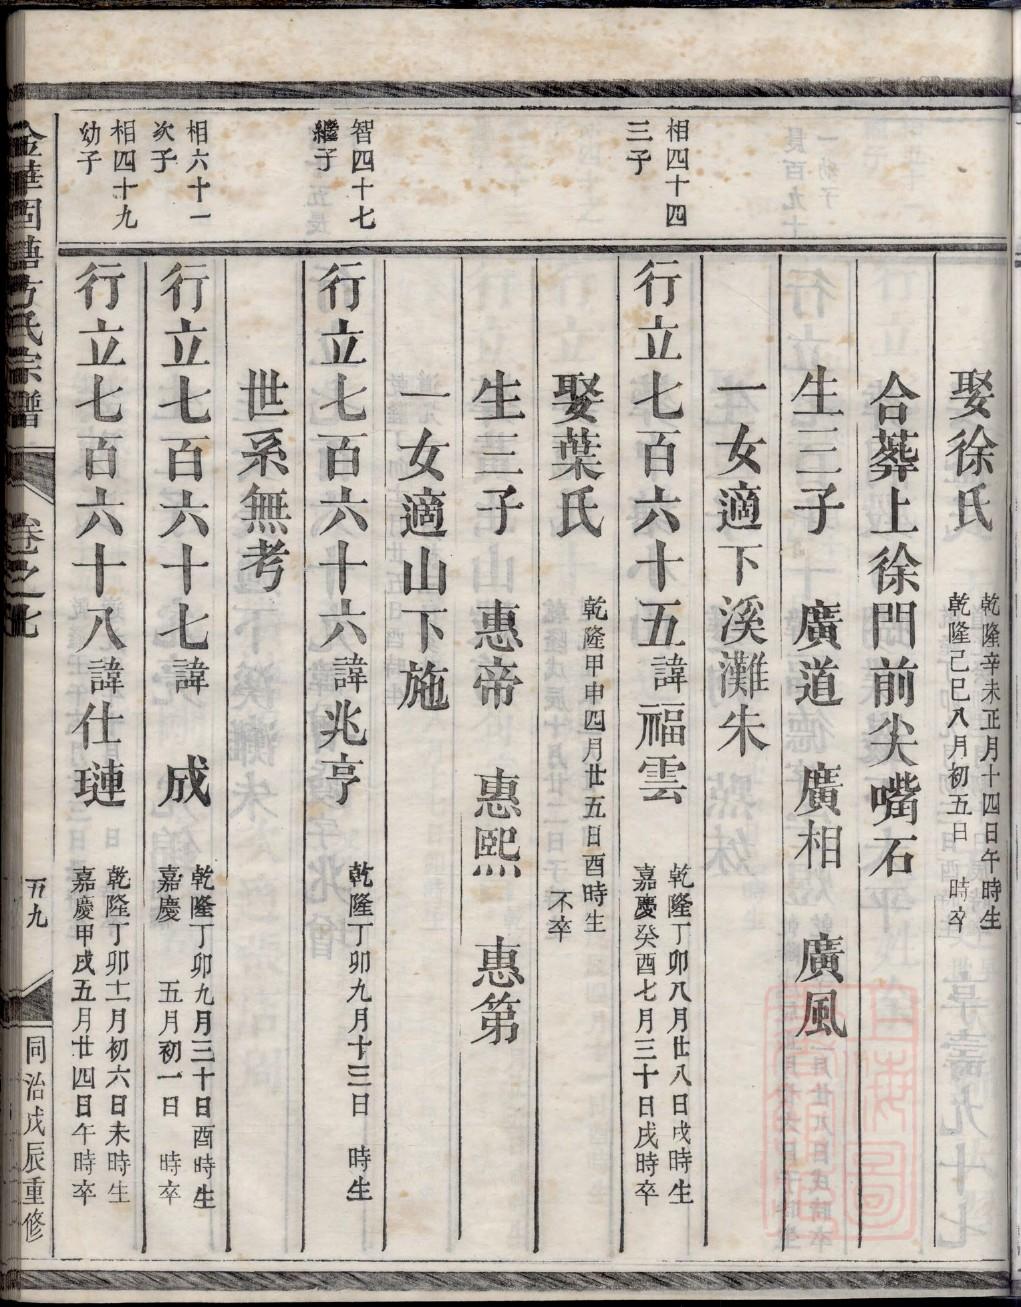 娶徐氏
乾隆辛未正月十四日午時生
乾隆己巳八月初五日　時卒
合葬上徐門前尖嘴石
生三子　廣道　廣相　廣風
一女適下溪灘朱
相四十四
三子
行立七百六十五諱福雲
乾隆丁卯八月廿八日戌時生
嘉慶癸酉七月三十日戌時卒
娶葉氏
乾隆甲申四月廿五日酉時生
不卒
生三子　惠帝　惠熙　惠第
一女適山下施
智四十七
繼子
行立七百六十六諱兆亨
乾隆丁卯九月十三日　時生
世系無考
相六十一
次子
行立七百六十七諱　成
乾隆丁卯九月三十日酉時生
嘉慶　五月初一日　時卒
相四十九
幼子
行立七百六十八諱仕璉
乾隆丁卯十二月初六日未時生
嘉慶甲戌五月廿四日午時卒
金華固塘方氏宗譜
卷之七
五九
同治戊辰重修